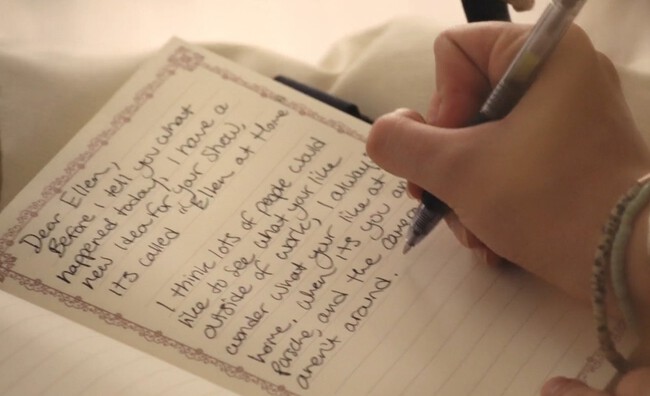 Dear Ellen,
Before I tell you what
happened today, I have a
new idea for your show,
It's called "Ellen at Home
I think lots of people would
like to see what your like
outside of work, I always
wonder what your like at
home, when it's you an
Porsche, and the camera
aren't around.